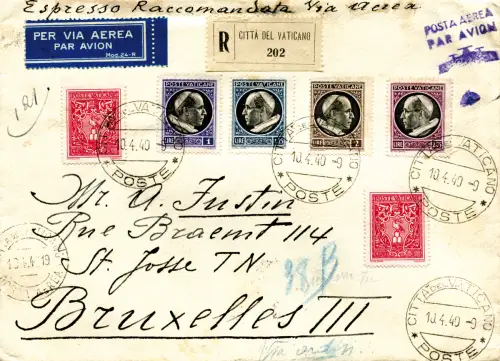 Espresso Raccomandata Via Aerea
PER VIA AEREA
PAR AVION
Mod. 24-R
R
CITTÀ DEL VATICANO
202
POSTA AEREA
PAR AVION
121
POSTE VATICANE
POSTE VATICANE
POSTE VATICANE
POSTE VATICANE
POSTE VATICANE
LIRE 1
LIRE
LIRE 2
LIRE
CITTÀ DEL VATICANO
10.4.40-9
POSTE
CITTÀ DEL VATICANO
10.4.40-9
POSTE
CITTÀ DEL VATICANO
10.4.40-9
POSTE
Mr. A. Justin
Rue Braemt 114
St. Josse TN
Bruxelles III
38 B
POSTE VATICANE
CITTÀ DEL VATICANO
10.4.40-9
POSTE
10.4.19